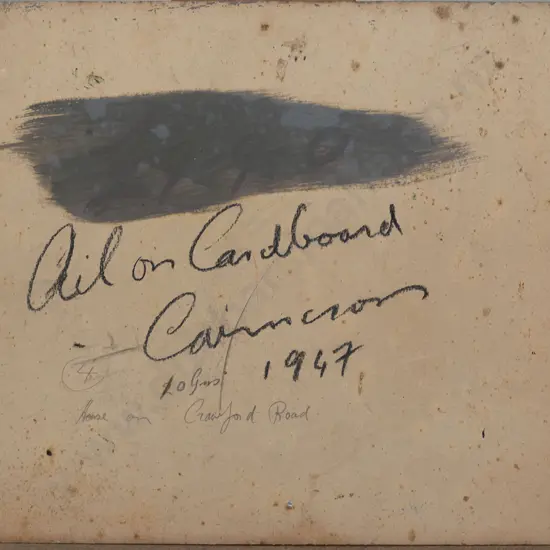 Oil on Cardboard
Cairncross
1947
4
10 Gns
House on Crawford Road